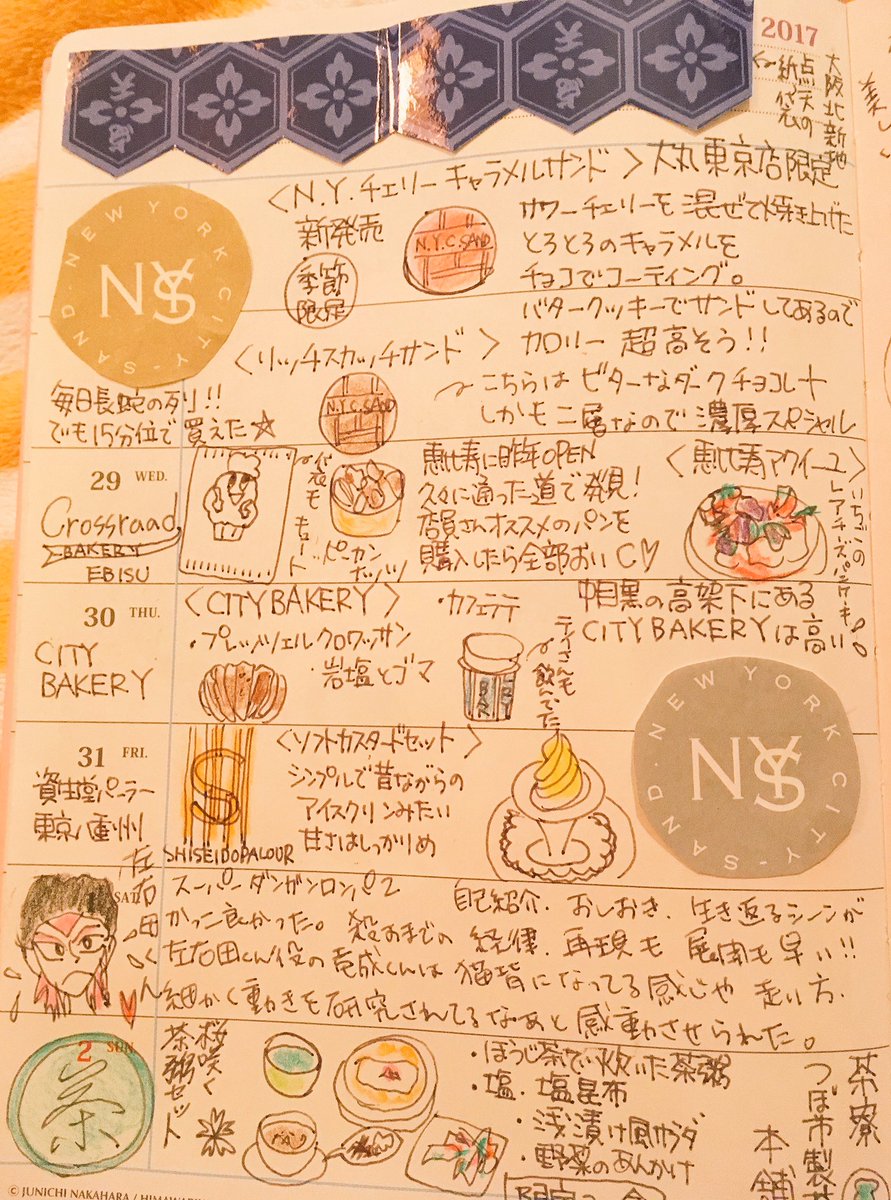 2017
大阪北新地
点天の
紙袋
〈N.Y.チェリーキャラメルサンド〉大丸東京店限定
新発売
季節
限定
N.Y.C.SAND
サワーチェリーを混ぜて焼き上げた
とろとろのキャラメルを
チョコでコーティング。
バタークッキーでサンドしてあるので
カロリー 超高そう!!
NEW YORK CITY-SAND-
NYS
〈リッチスカッチサンド〉
N.Y.C.SAND
こちらはビターなダークチョコレート
しかも二層なので濃厚スペシャル
毎日長蛇の列!!
でも15分位で買えた☆
29 WED.
Crossroad
BAKERY
EBISU
袋もキュート
ピーカンナッツ
恵比寿に昨年OPEN
久々に通った道で発見!
店員さんオススメのパンを
購入したら全部おいC♡
〈恵比寿アクイーユ〉
いちごの
レアチーズパンケーキ!
30 THU.
CITY
BAKERY
〈CITY BAKERY〉
・プレッツェルクロワッサン
・岩塩とゴマ
・カフェラテ
飲んでた
中目黒の高架下にある
CITY BAKERYは高い
31 FRI.
資生堂パーラー
東京八重州
S
SHISEIDO PALOUR
〈ソフトカスタードセット〉
シンプルで昔ながらの
アイスクリンみたい
甘さはしっかりめ
NEW YORK CITY-SAND-
NYS
SAT.
左右田くん
スーパーダンガンロンパ2
かっこ良かった。殺るまでの
自己紹介、おしおき、生き返るシーンが
再現も展開も早い!!
左右田くん役の竜成くんは猫背になってる感じや走い方、
細かく動きを研究されてるなあと感動させられた。
2 SUN.
茶
桜咲く
茶粥セット
・ほうじ茶で炊いた茶粥
・塩、塩昆布
・浅漬け風サラダ
・野菜のあんかけ
茶寮
つぼ市製茶
本舗
© JUNICHI NAKAHARA / HIMAWARI